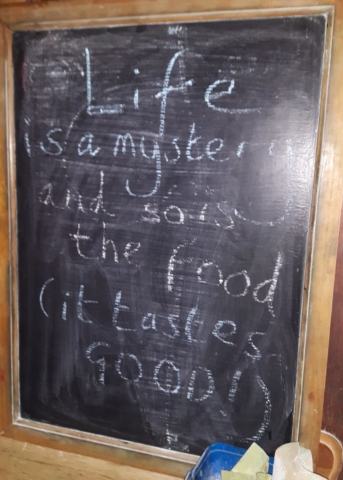 Life
is a mystery
and so is
the food
(it tastes
GOOD!)